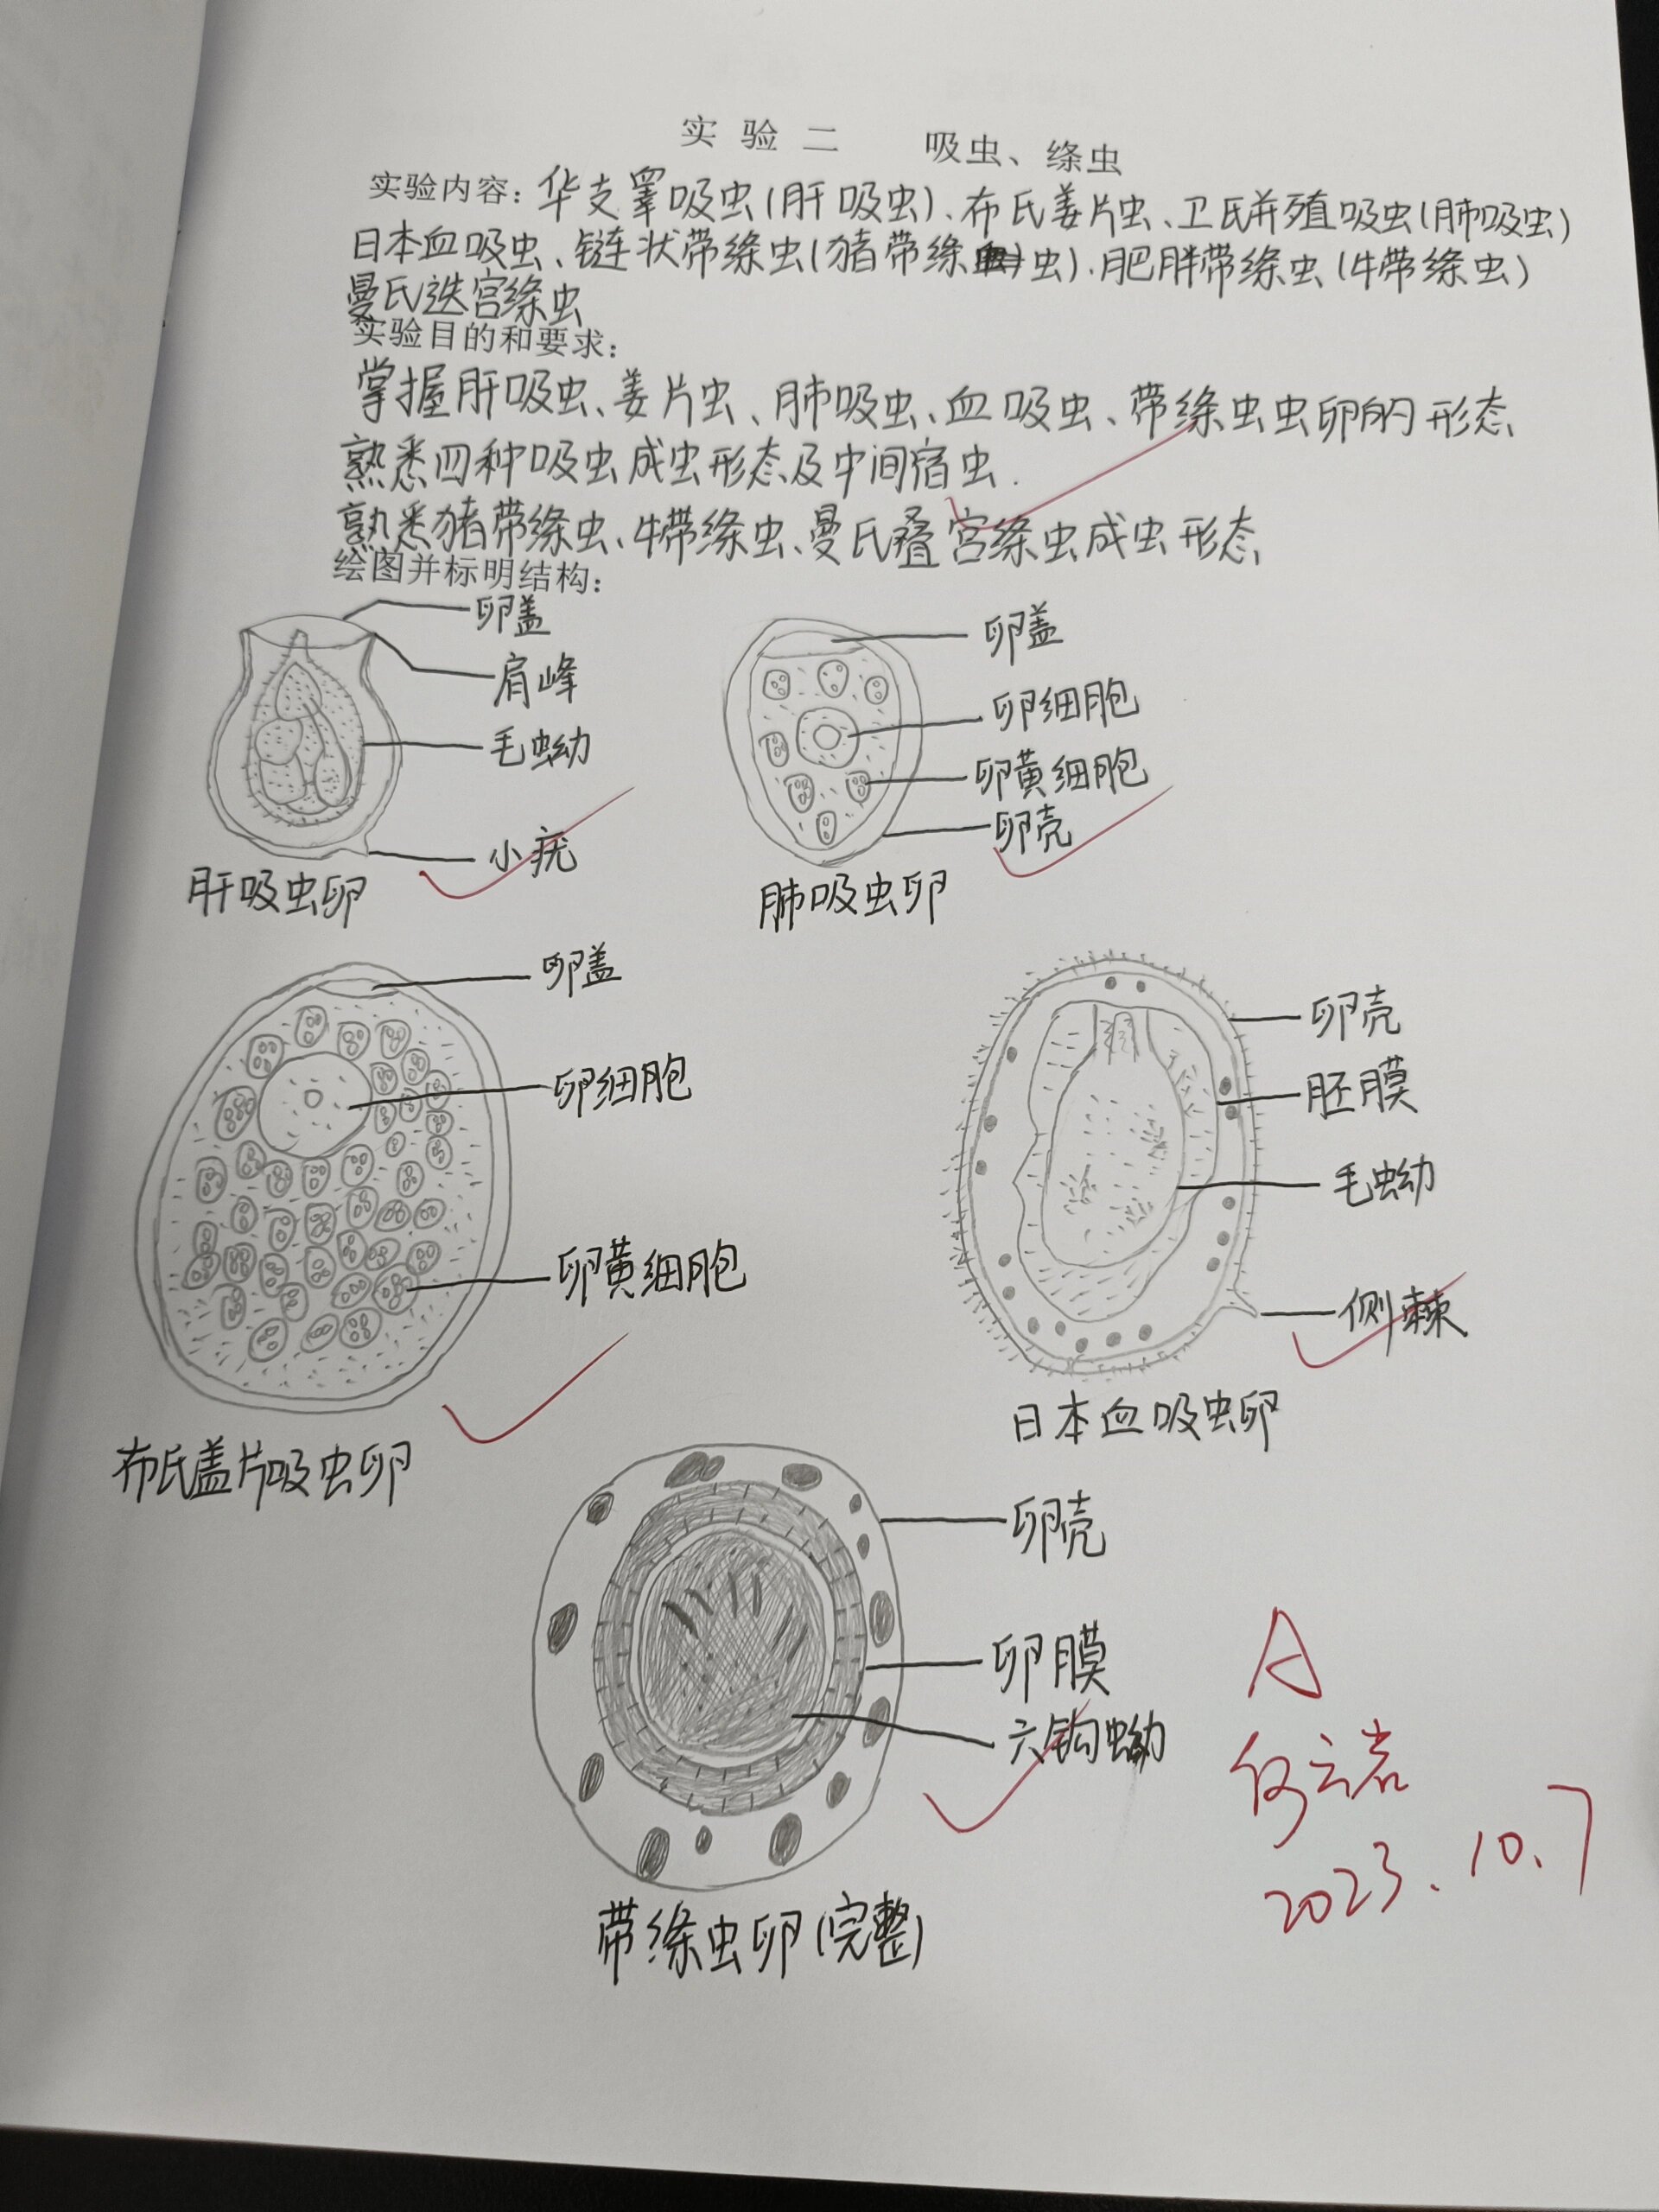 实验二 吸虫、绦虫
实验内容：华支睾吸虫(肝吸虫)、布氏姜片虫、卫氏并殖吸虫(肺吸虫)
日本血吸虫、链状带绦虫(猪带绦虫)、肥胖带绦虫(牛带绦虫)
曼氏迭宫绦虫
实验目的和要求：
掌握肝吸虫、姜片虫、肺吸虫、血吸虫、带绦虫虫卵的形态
熟悉四种吸虫成虫形态及中间宿虫.
熟悉猪带绦虫、牛带绦虫、曼氏叠宫绦虫成虫形态
绘图并标明结构：
卵盖
肩峰
毛蚴
小疣
肝吸虫卵
卵盖
卵细胞
卵黄细胞
卵壳
肺吸虫卵
卵盖
卵细胞
卵黄细胞
布氏盖片吸虫卵
卵壳
胚膜
毛蚴
侧棘
日本血吸虫卵
卵壳
卵膜
六钩蚴
带绦虫卵(完整)
A
2023.10.7